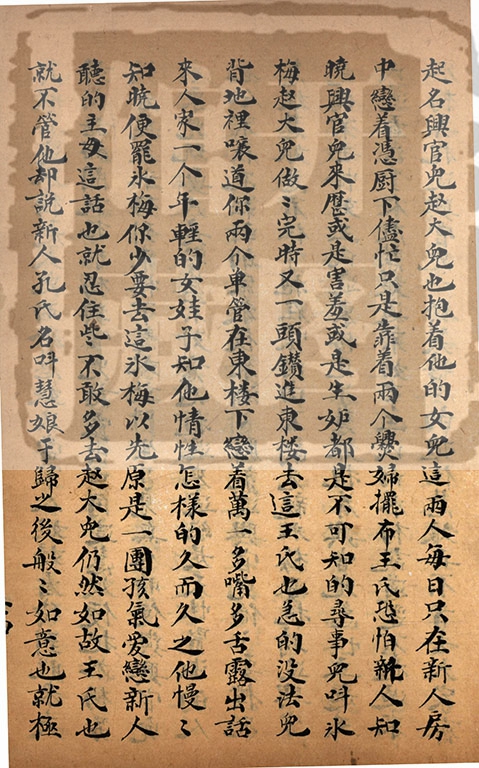 起名興官兒赵大兒也抱着他的女兒這両人每日只在新人房
中戀着憑厨下儘忙只是靠着両个爨婦擺布王氏恐怕新人知
曉興官兒來歷或是害羞或是生妒都是不可知的尋事兒呌氷
梅赵大兒做〻完時又一頭鑚進東楼去這王氏也急的没法兒
背地裡嚷道你両个单管在東楼下戀着萬一多嘴多舌露出話
來人家一个年輕的女娃子知他情性怎樣的久而久之他慢〻
知曉便罷氷梅你少要去這氷梅以先原是一團孩氣愛戀新人
聽的主母這話也就忍住些不敢多去赵大兒仍然如故王氏也
就不管他却說新人孔氏名呌慧娘于歸之後般〻如意也就極